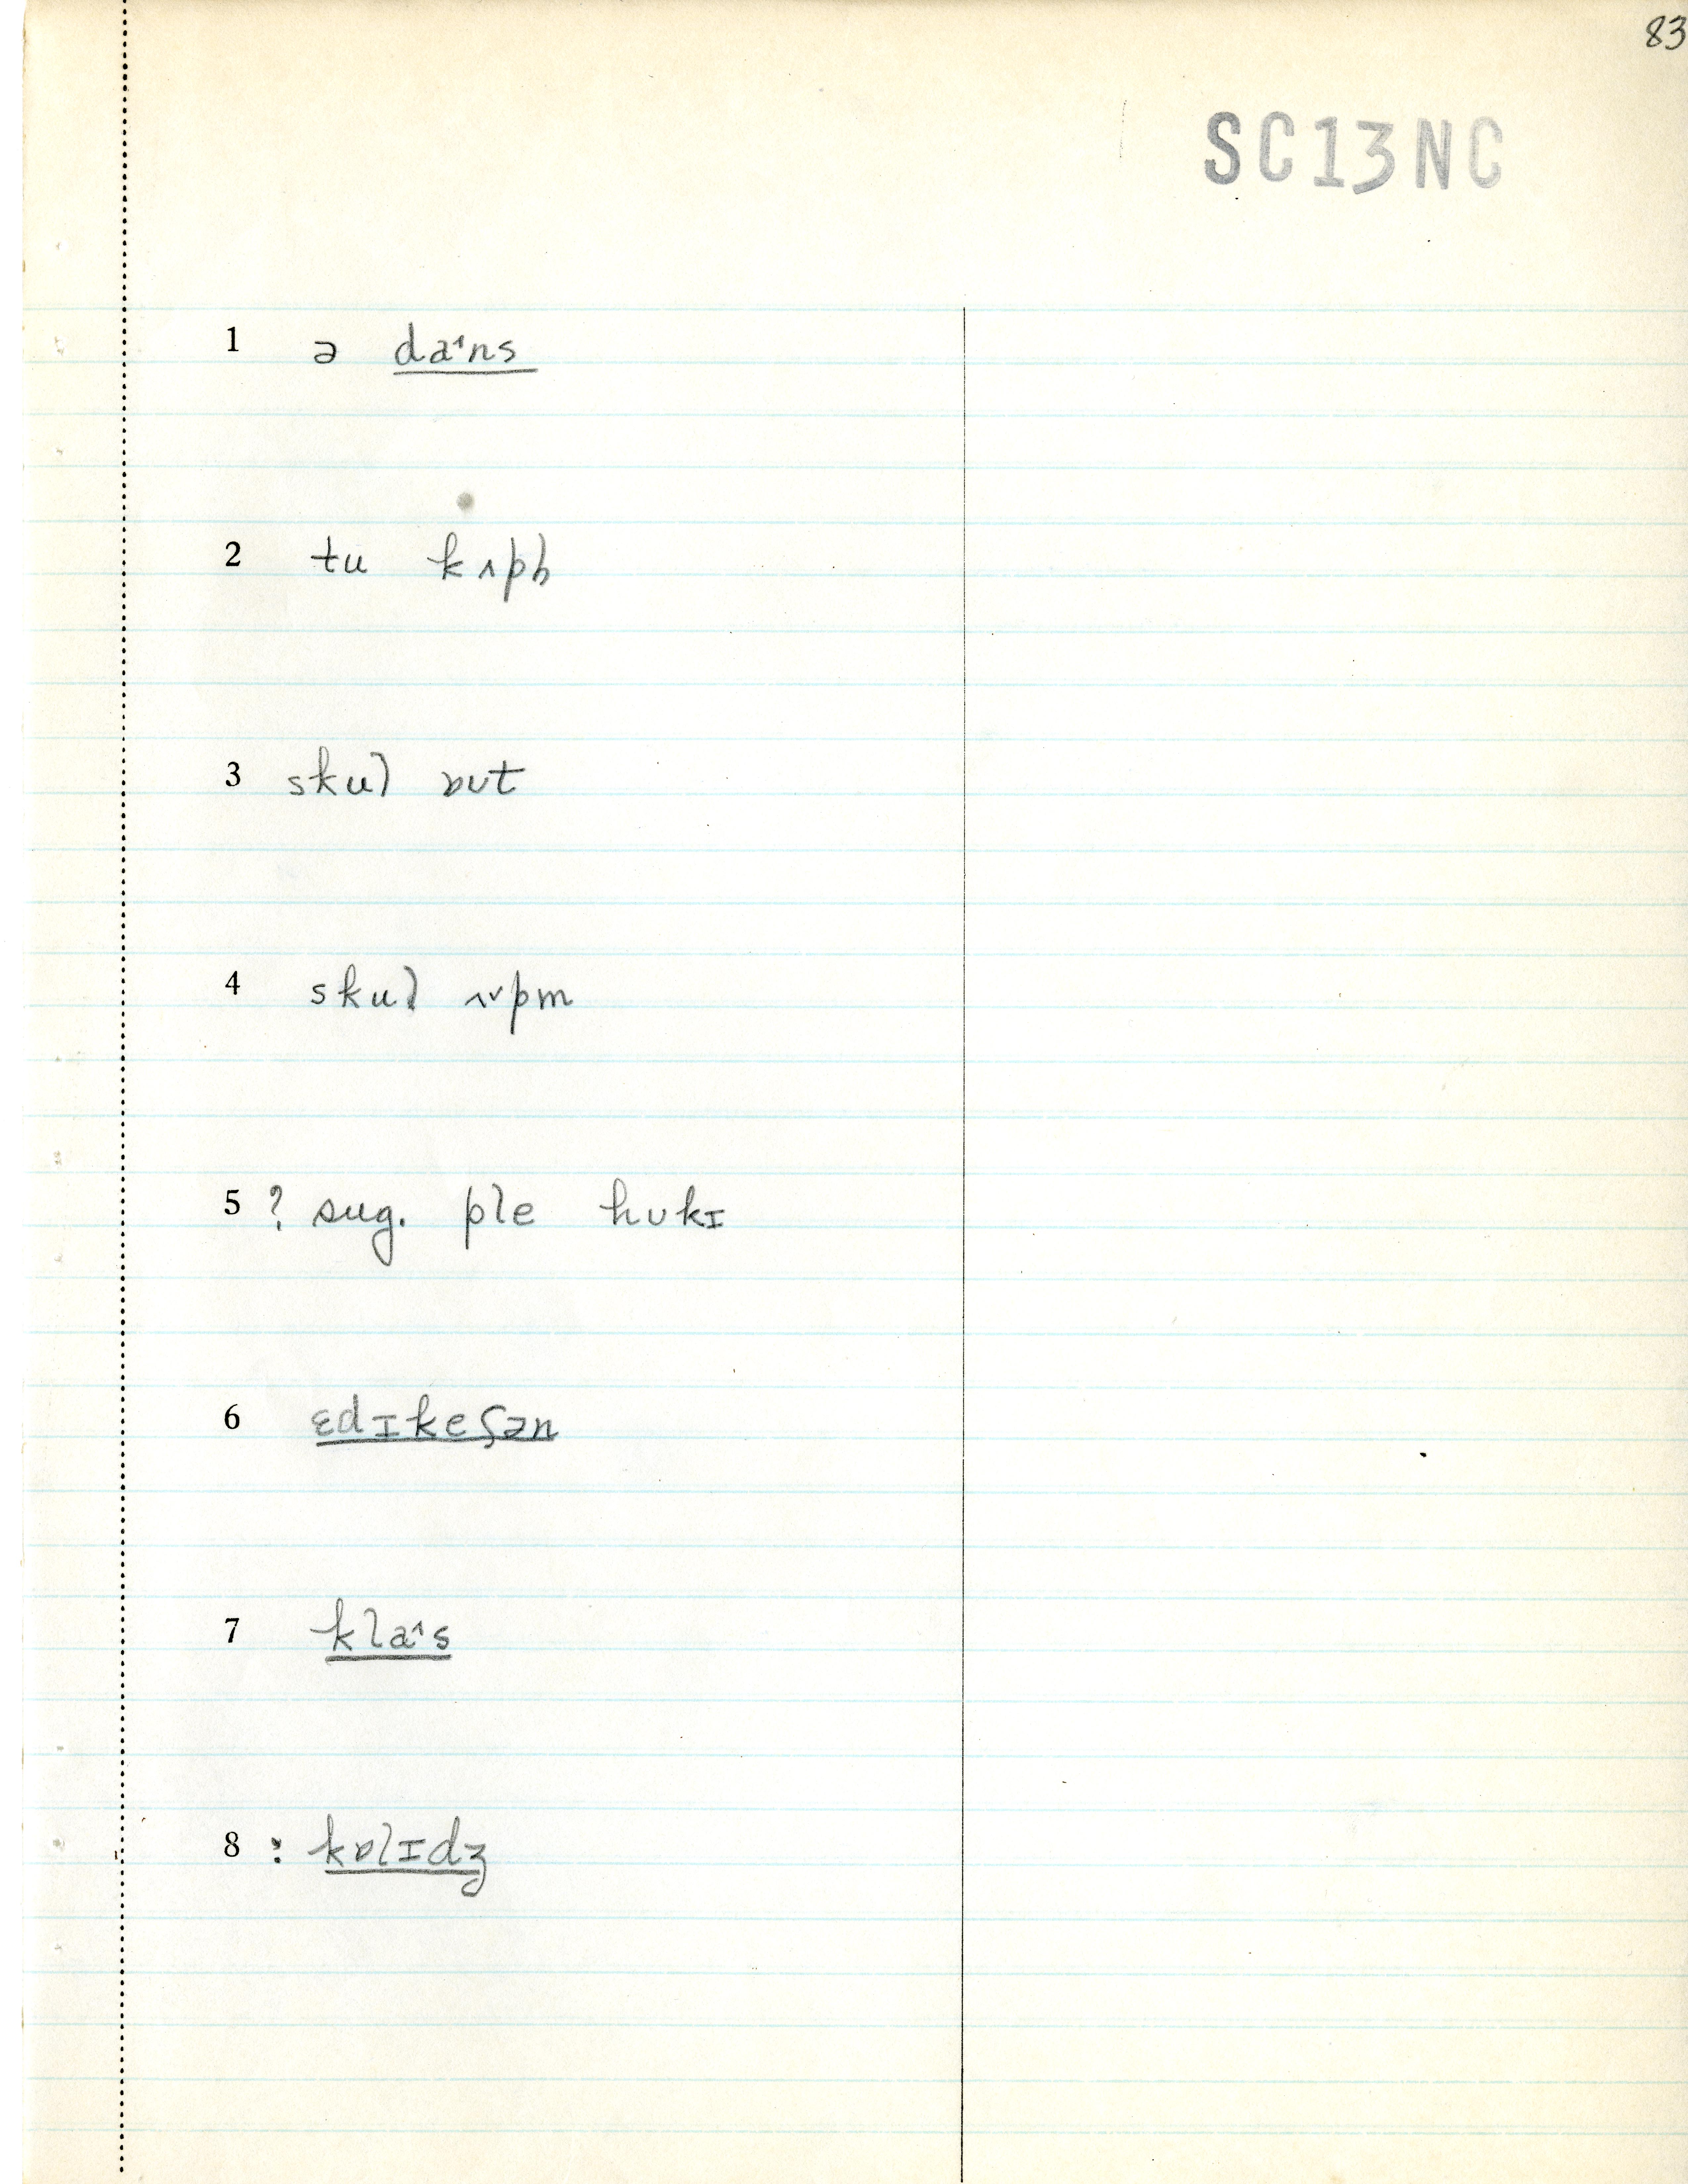 83
SC13NC
1 ə da˄ns
2 tu
3 skul ɒʊt
4 skul
5 ? sug. ple hʊkɪ
6 ɛdɪkeʃən
7 kla˄s
8 : kɒlɪdʒ